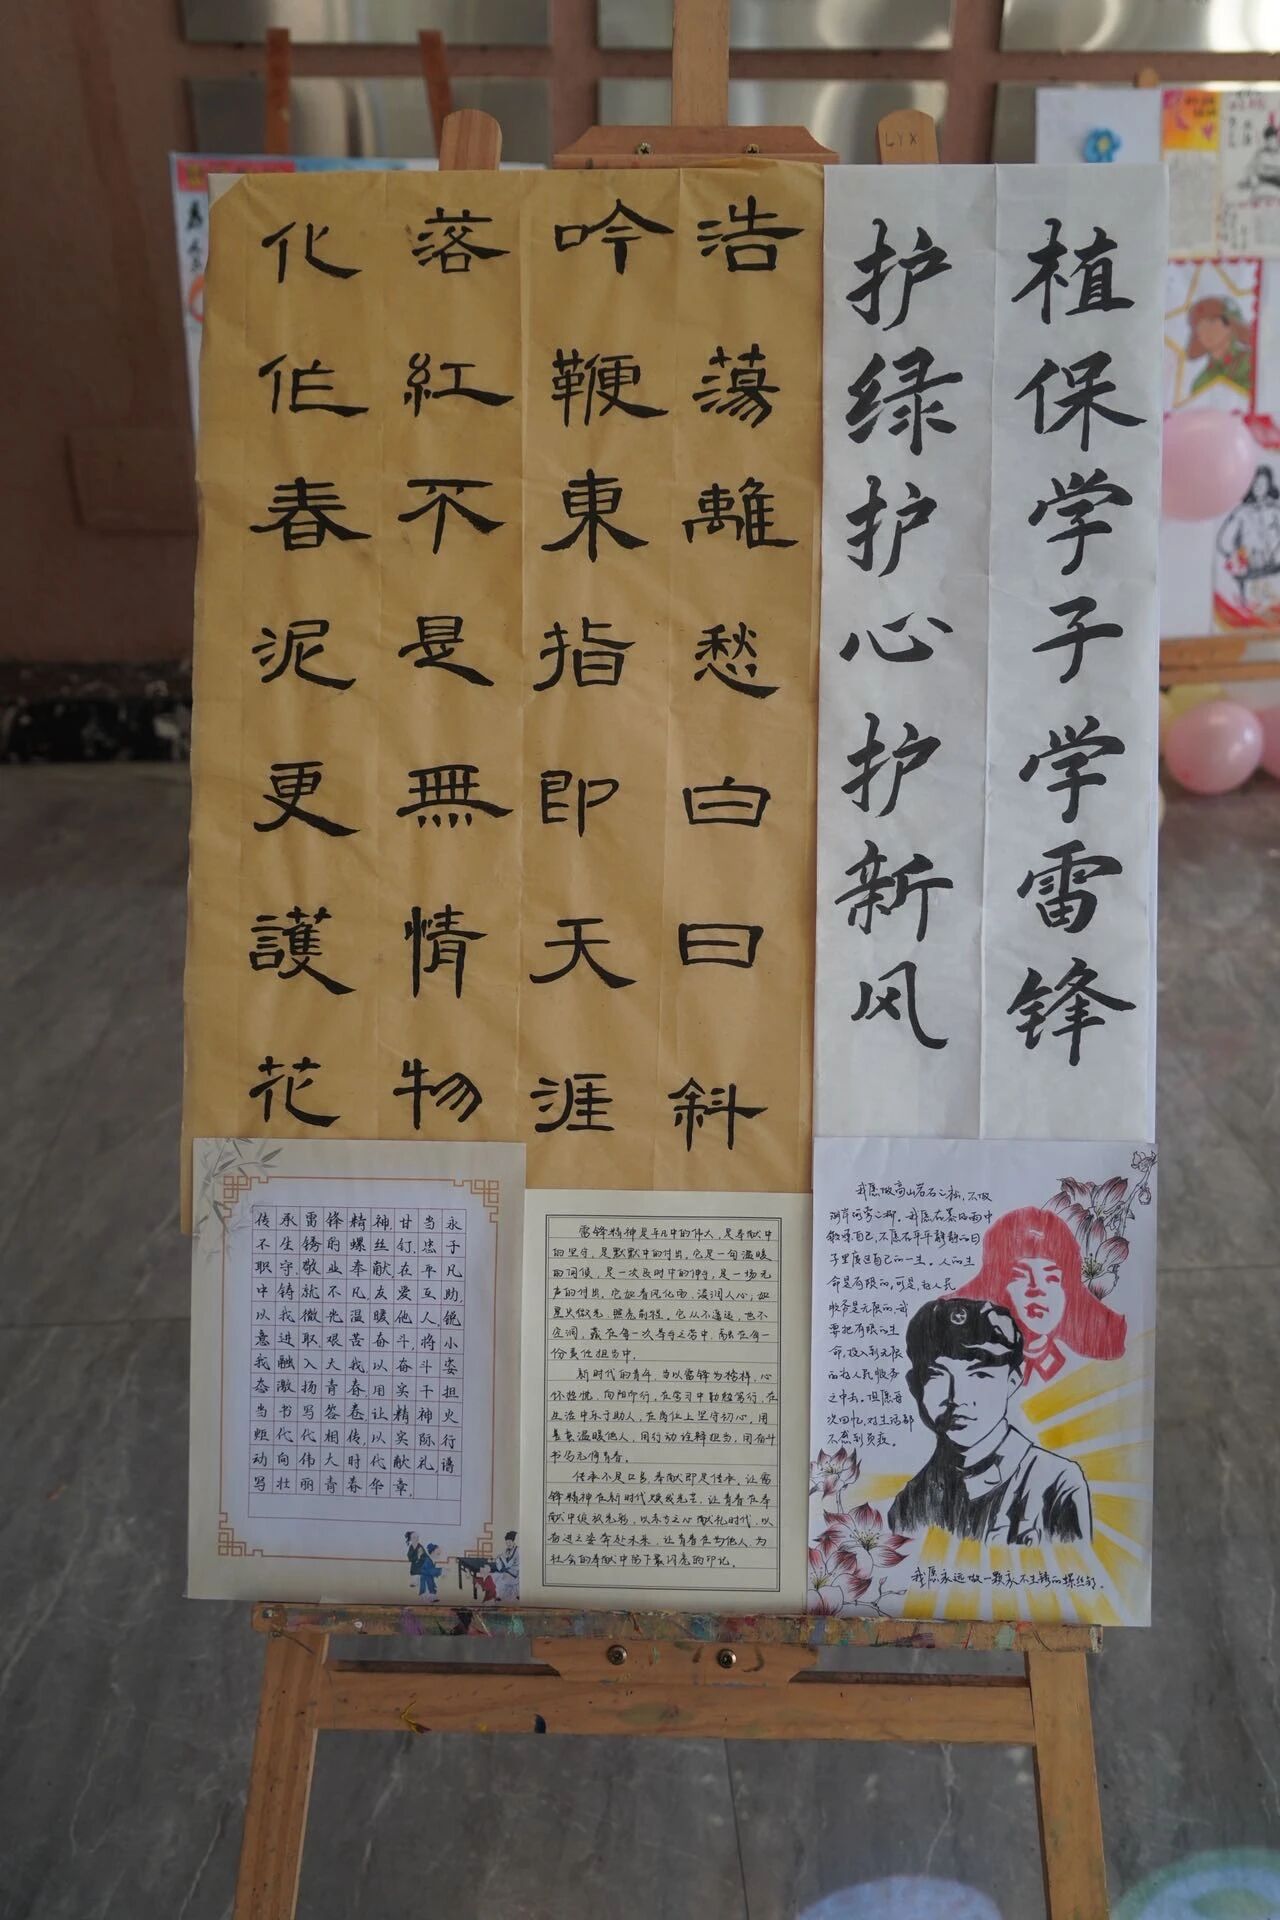 植保学子学雷锋
护绿护心护新风
浩蕩離愁白日斜
吟鞭東指即天涯
落紅不是無情物
化作春泥更護花
传承雷锋精神,甘当永
不生锈的螺丝钉.忠于
职守.敬业奉献.在平凡
中铸就不凡.友爱互助,
以我微光温暖他人.锐
意进取.艰苦奋斗.将小
我融入大我.以奋斗姿
态激扬青春.用实干担
当书写答卷.让精神火
炬代代相传.以实际行
动向伟大时代献礼.谱
写壮丽青春华章.
雷锋精神是平凡中的伟大,是奉献中
的坚守,是默默中的付出。它是一句温暖
的问候,是一次及时中的伸手,是一场无
声的付出。它如春风化雨,浸润人心;如
星火微光,照亮前程。它从不遥远,也不
空洞,藏在每一次举手之劳中,融在每一
份责任担当中。
新时代的青年,当以雷锋为榜样,心
怀热忱,向阳而行,在学习中勤勉笃行,在
生活中乐于助人,在岗位上坚守初心,用
善意温暖他人,用行动诠释担当,用奋斗
书写无悔青春。
传承不是口号,奉献即是传承,让雷
锋精神在新时代焕发光芒,让青春在奉
献中绽放光彩,以赤方之心献礼时代,以
奋进之姿奔赴未来,让青春在为他人、为
社会的奉献中留下最闪亮的印记。
我愿做高山岩石之松,不做
湖岸河旁之柳。我愿在暴风雨中
锻炼自己,不愿在平平静静的日
子里度过自己的一生。人的生
命是有限的,可是,为人民
服务是无限的,我
要把有限的生
命,投入到无限
的为人民服务
之中去。但愿每
次回忆,对生活都
不感到负疚。
我愿永远做一颗永不生锈的螺丝钉。
LYX